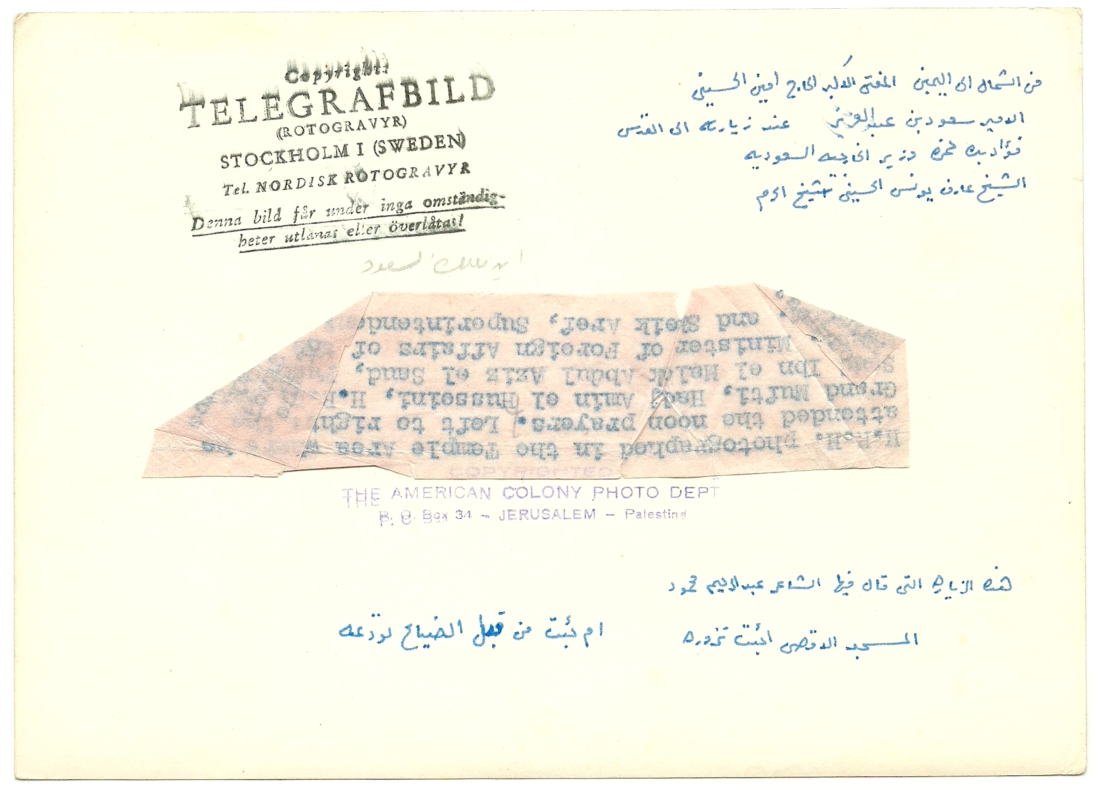 Copyright:
TELEGRAFBILD
(ROTOGRAVYR)
STOCKHOLM I (SWEDEN)
Tel. NORDISK ROTOGRAVYR
Denna bild får under inga omständig-
heter utlånas eller överlåtas!
من الشمال الى اليمين المفتي الاكبر الحاج امين الحسيني
الامير سعود بن عبد العزيز عند زيارته الى القدس
فؤاد بك حمزه وزير الخارجيه السعوديه
الشيخ عارف يونس الحسيني شيخ الحرم
السعود
H.R.H. photographed in the Temple Area
attended the noon prayers. Left to right
Grand Mufti, Hadj Amin el Husseini, H.R.
Ibn el Melek Abdul Aziz el Saud,
Minister of Foreign Affairs of
and Sheik Aref, Superintend
COPYRIGHTED
THE AMERICAN COLONY PHOTO DEPT
P. O. Box 34 – JERUSALEM – Palestine
هذه الزياره التي قال فيها الشاعر عبد الرحيم محمود
المسجد الاقصى اجئت تزوره ام جئت من قبل الضياع تودعه